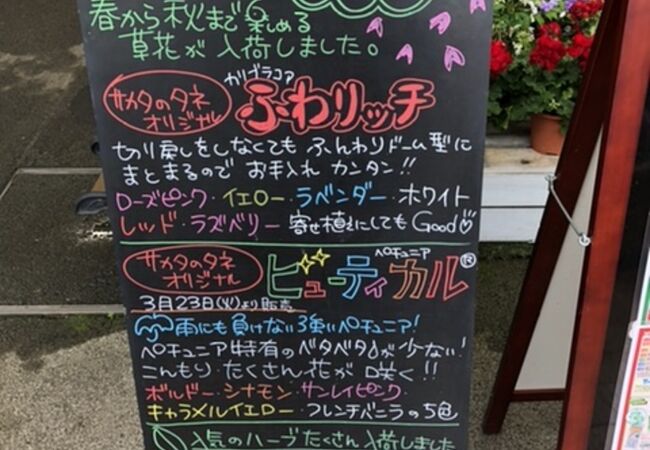 春から秋まで楽しめる
草花が入荷しました。
サカタのタネ
オリジナル
カリブラコア
ふわリッチ
切り戻しをしなくても ふんわりドーム型に
まとまるので お手入れ カンタン!!
ローズピンク・イエロー・ラベンダー・ホワイト
レッド・ラズベリー 寄せ植えにしてもGood
サカタのタネ
オリジナル
ペチュニア
ビューティカル®
3月23日(火)より販売
雨にも負けない強いペチュニア!
ペチュニア特有のベタベタが少ない!
こんもり・たくさん花が咲く!!
ボルドー・シナモン・サンレイピンク・
キャラメルイエロー・フレンチバニラの5色
人気のハーブたくさん入荷しました